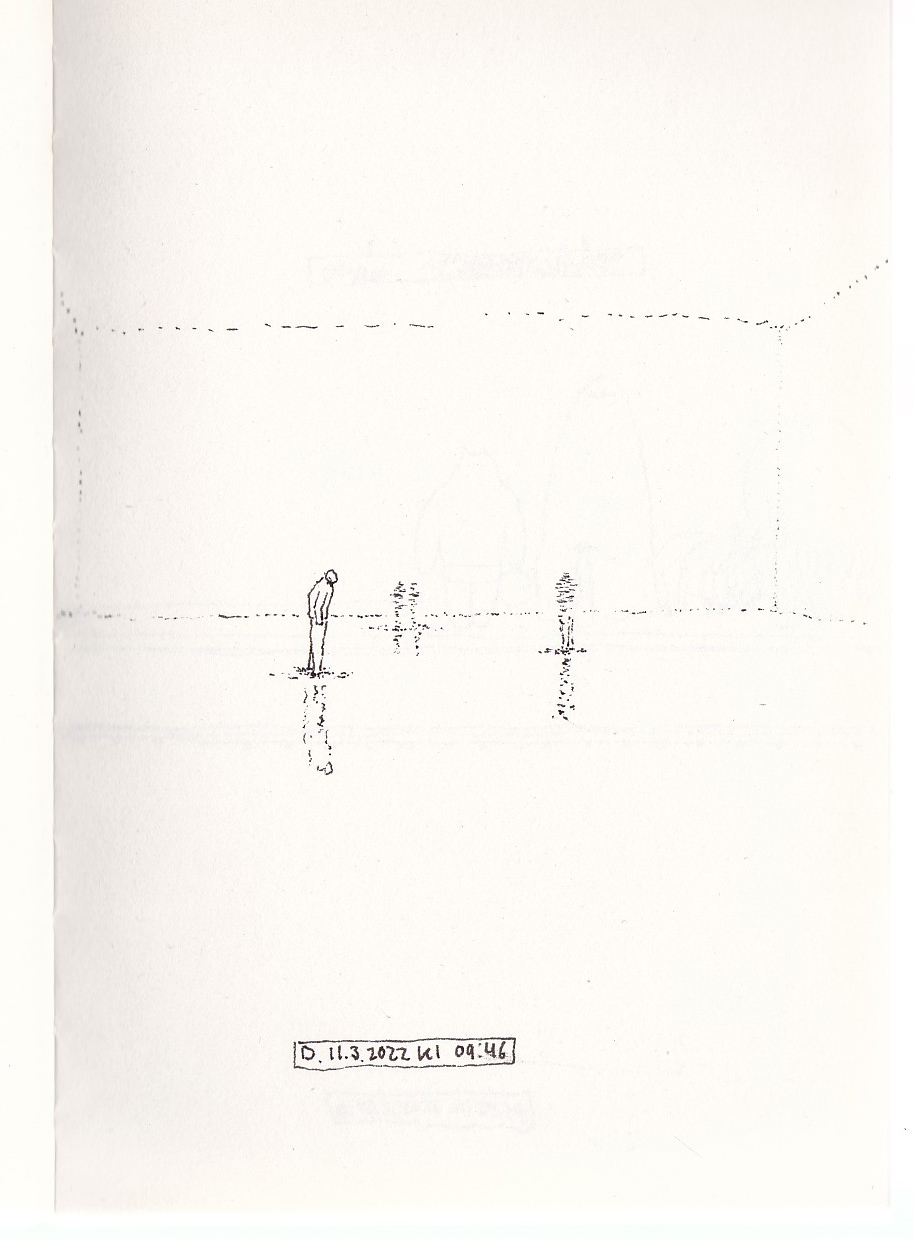 D. 11.3.2022 Kl 09:46